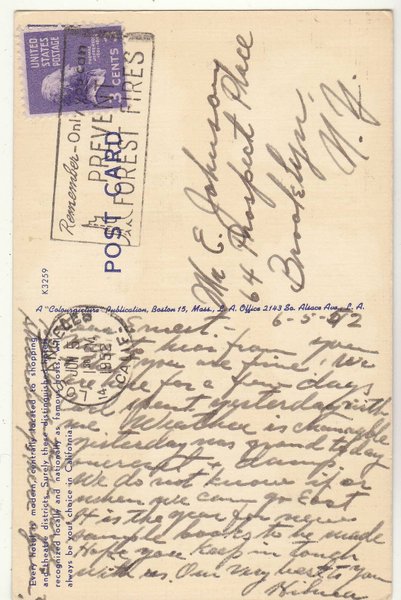 UNITED
STATES
POSTAGE
3 CENTS 3
Remember-Only you can
PREVENT
FOREST FIRES
POST CARD
Mr E. Johnson
64 Prospect Place
Brooklyn,
N.Y.
K3259
A "Colourpicture" Publication, Boston 15, Mass., L. A. Office 2143 So. Alsace Ave., L. A.
LOS ANGELES
JUN 5
1952
CALIF.
Every hotel is modern, centrally located to shopping
and theatre districts. Surely these distinguished hotels,
recognized locally and nationally as famous hosts, will
always be your choice in California.
6-5-52
to hear from you
you are fine. We
are here for a few days
and spent yesterday with
Weather is changeable
yesterday was grand today
overcast & damp.
We do not know if or
when we can go East
It is the year for new
sample books to be made
Hope you keep in touch
with us. Our very best to you